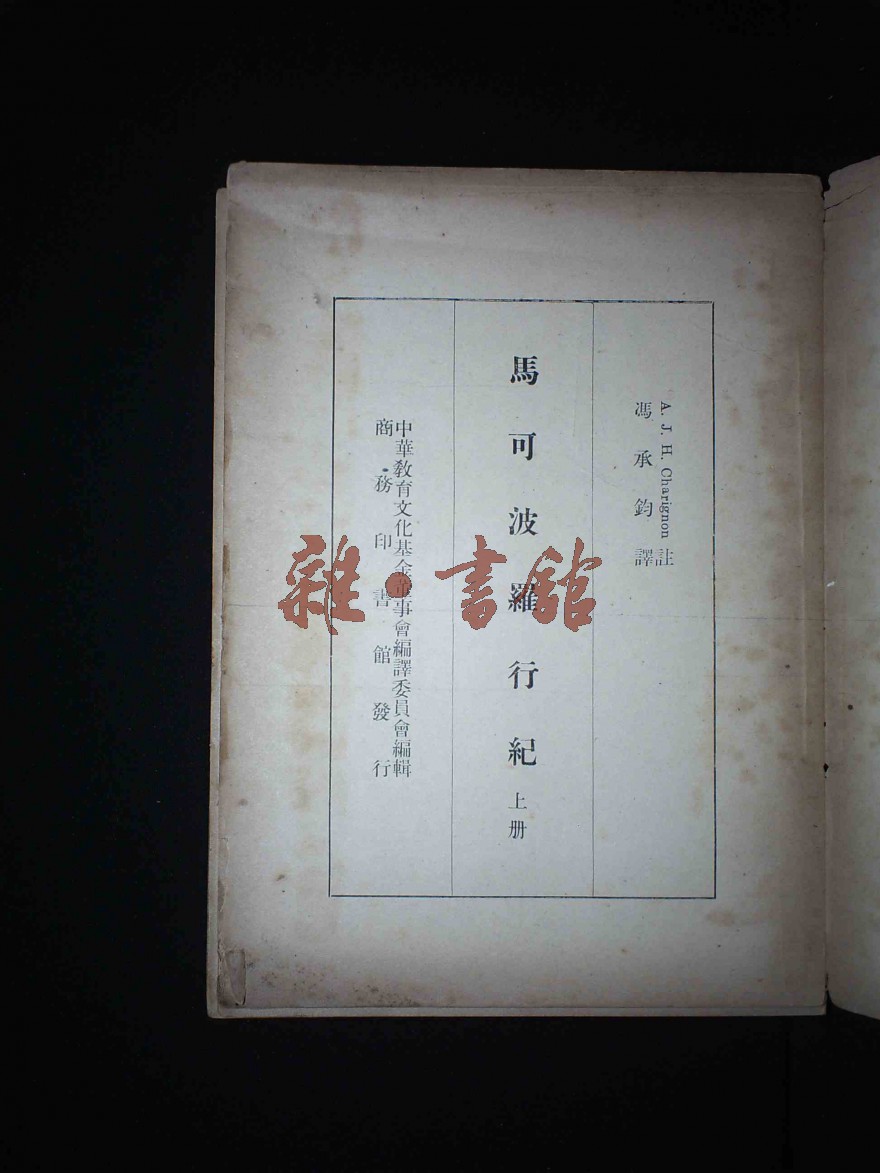 A. J. H. Charignon 註
馮承鈞 譯
馬可波羅行紀 上册
中華教育文化基金董事會編譯委員會編輯
商務印書館發行
雜·書館